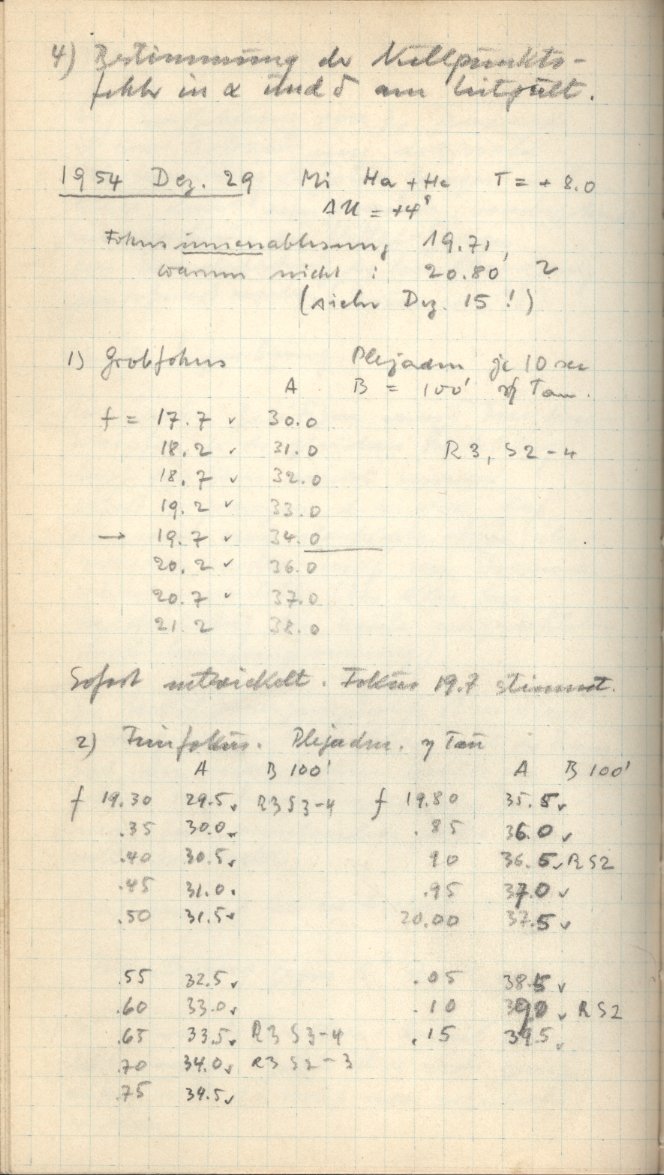 4) Bestimmung der Nullpunkts-
fehler in α und δ am Leitpult.
1954 Dez. 29 Mi Ha + He T = + 8.0
ΔU = +4ˢ
Fokus innenablesung 19.71,
warum nicht : 20.80 ?
(siehe Dez. 15 !)
1) Grobfokus Plejaden je 10 sec
A B = 100' η Tau.
f = 17.7 ✓ 30.0
18.2 ✓ 31.0 R3, S2-4
18.7 ✓ 32.0
19.2 ✓ 33.0
→ 19.7 ✓ 34.0
20.2 ✓ 36.0
20.7 ✓ 37.0
21.2 38.0
Sofort entwickelt. Fokus 19.7 stimmt.
2) Feinfokus. Plejaden. η Tau
A B 100' A B 100'
f 19.30 29.5 ✓ R3 S3-4 f 19.80 35.5 ✓
.35 30.0 ✓ .85 36.0 ✓
.40 30.5 ✓ 90 36.5 ✓ R S2
.45 31.0 ✓ .95 37.0 ✓
.50 31.5 ✓ 20.00 37.5 ✓
.55 32.5 ✓ .05 38.5 ✓
.60 33.0 ✓ .10 39.0 ✓ R S2
.65 33.5 ✓ R3 S3-4 .15 39.5 ✓
.70 34.0 ✓ R3 S2-3
.75 34.5 ✓